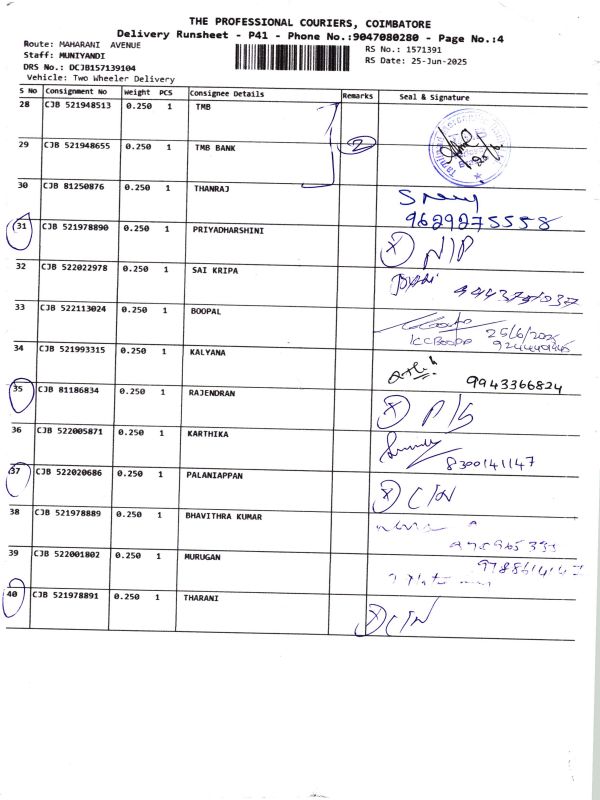 THE PROFESSIONAL COURIERS, COIMBATORE
Delivery Runsheet - P41 - Phone No.:9047080280 - Page No.:4
Route: MAHARANI AVENUE
Staff: MUNIYANDI
DRS No.: DCJB157139104
Vehicle: Two Wheeler Delivery
RS No.: 1571391
RS Date: 25-Jun-2025
S No Consignment No Weight PCS Consignee Details Remarks Seal & Signature
28 CJB 521948513 0.250 1 TMB
29 CJB 521948655 0.250 1 TMB BANK 2
30 CJB 81250876 0.250 1 THANRAJ
9629275558
31 CJB 521978890 0.250 1 PRIYADHARSHINI X N/P
32 CJB 522022978 0.250 1 SAI KRIPA
33 CJB 522113024 0.250 1 BOOPAL
25/6/2025
34 CJB 521993315 0.250 1 KALYANA
9943366824
35 CJB 81186834 0.250 1 RAJENDRAN X P/S
36 CJB 522005871 0.250 1 KARTHIKA
8300141147
37 CJB 522020686 0.250 1 PALANIAPPAN X C/N
38 CJB 521978889 0.250 1 BHAVITHRA KUMAR
39 CJB 522001802 0.250 1 MURUGAN
40 CJB 521978891 0.250 1 THARANI X C/N